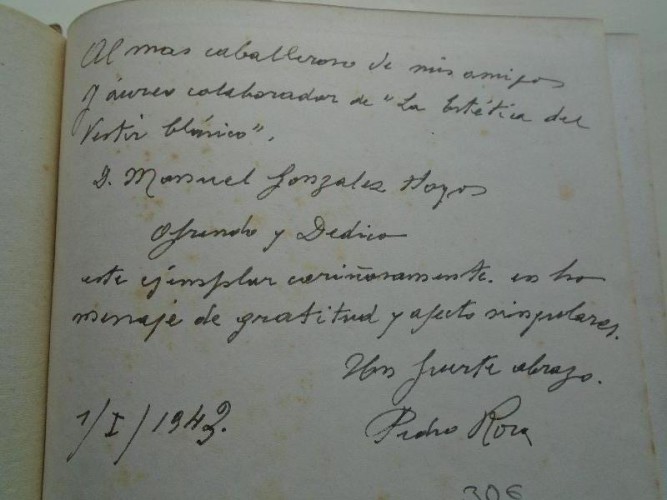 Al mas caballeroso de mis amigos
y áureo colaborador de "La Estética del
Vestir Clásico".
D. Manuel Gonzalez Hoyos
Ofrendo y Dedico
este ejemplar cariñosamente. en ho
menaje de gratitud y afecto singulares.
Un fuerte abrazo.
1/I/1943.
Pedro Roca
306